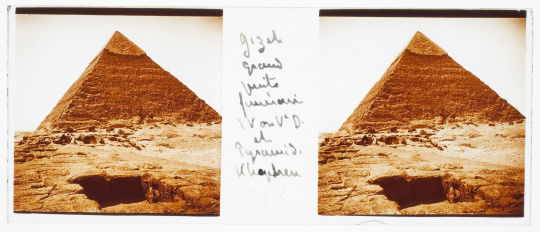 Gizeh
grand
puits
funéraire
IV ou Ve D.
et
Pyramid.
Khephren